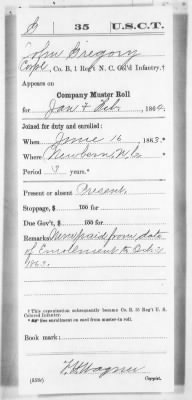 G 35 U.S.C.T.
John Gregory
Corpl, Co. B, 1 Reg't N. C. Col'd Infantry.†
Appears on
Company Muster Roll
for Jan & Feb, 1864.
Joined for duty and enrolled:
When June 16, 1863.*
Where Newbern, N.C.
Period 3 years.*
Present or absent Present.
Stoppage, $ 100 for
Due Gov't, $ 100 for
Remarks: Never paid from date
of Enrolement to Dec 31
1863.
† This organization subsequently became Co. B 35 Reg't U. S.
Colored Infantry.
* See enrollment on card from muster-in roll.
Book mark:
Wagner
(858c) Copyist.